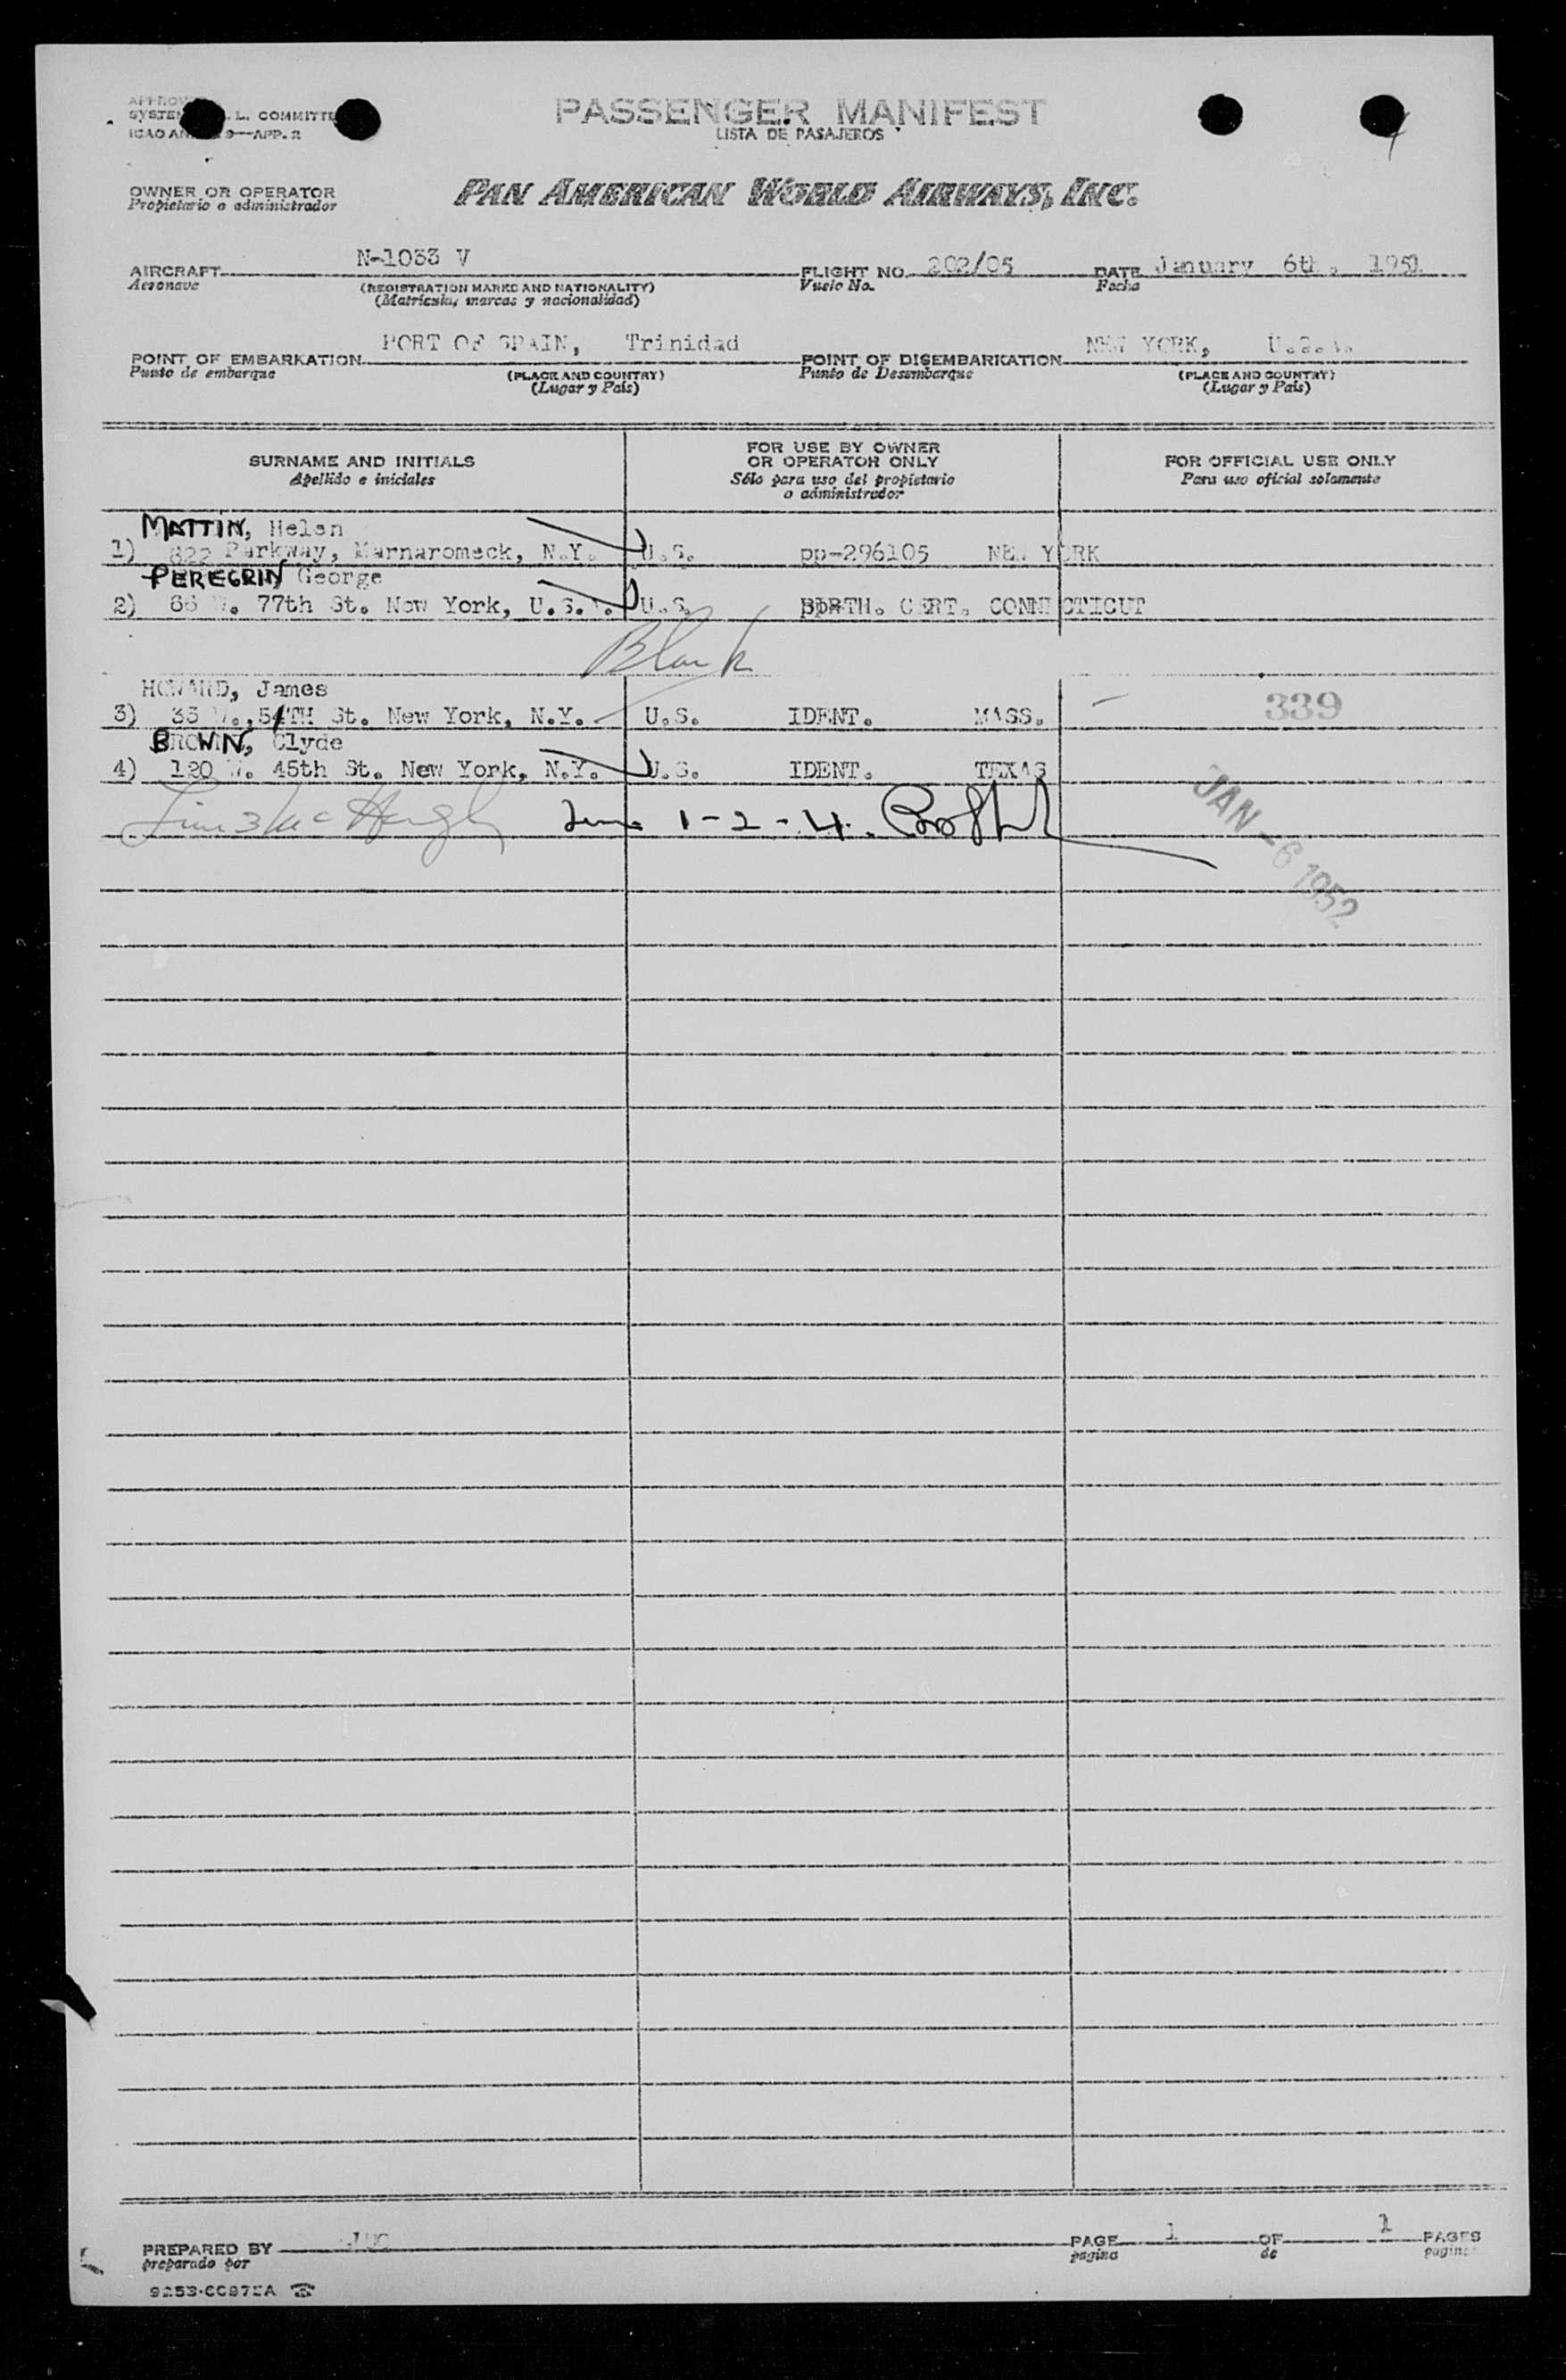 PASSENGER MANIFEST
LISTA DE PASAJEROS
L. COMMITTE
9—APP. 2
OWNER OR OPERATOR
Propietario o administrador
PAN AMERICAN WORLD AIRWAYS, INC.
AIRCRAFT N-1033 V FLIGHT NO. 202/05 DATE January 6th, 1951
Aeronave (REGISTRATION MARKS AND NATIONALITY) Vuelo No. Fecha
(Matricula, marcas y nacionalidad)
POINT OF EMBARKATION PORT OF SPAIN, Trinidad POINT OF DISEMBARKATION NEW YORK, U.S.A.
Punto de embarque (PLACE AND COUNTRY) Punto de Desembarque (PLACE AND COUNTRY)
(Lugar y País) (Lugar y País)
SURNAME AND INITIALS
Apellido e iniciales
FOR USE BY OWNER
OR OPERATOR ONLY
Sólo para uso del propietario
o administrador
FOR OFFICIAL USE ONLY
Para uso oficial solamente
MATTIN, Helen
1) 622 Parkway, Marnaromeck, N.Y. U.S. pp-296105 NEW YORK
PEREGRIN George
2) 66 W. 77th St. New York, U.S.A. U.S. BIRTH. CERT. CONNECTICUT
Blank
HOWARD, James
3) 33 W., 54TH St. New York, N.Y. U.S. IDENT. MASS. 339
BROWN, Clyde
4) 120 W. 45th St. New York, N.Y. U.S. IDENT. TEXAS
Line 3 Line 1-2-4.
JAN -6 1952
PREPARED BY
preparado por
PAGE 1 OF 1 PAGES
pagina de paginas